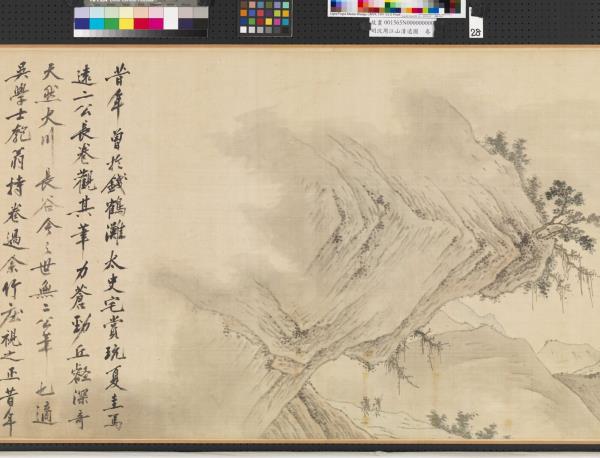 故畫 001565N000000000
明沈周江山清遠圖 卷
28
昔年曾於錢鶴灘太史宅賞玩夏圭馬
遠二公長卷觀其筆力蒼勁丘壑深奇
天然大川長谷今之世無二公筆也適
吳學士匏翁持卷過余竹庄視之正昔年